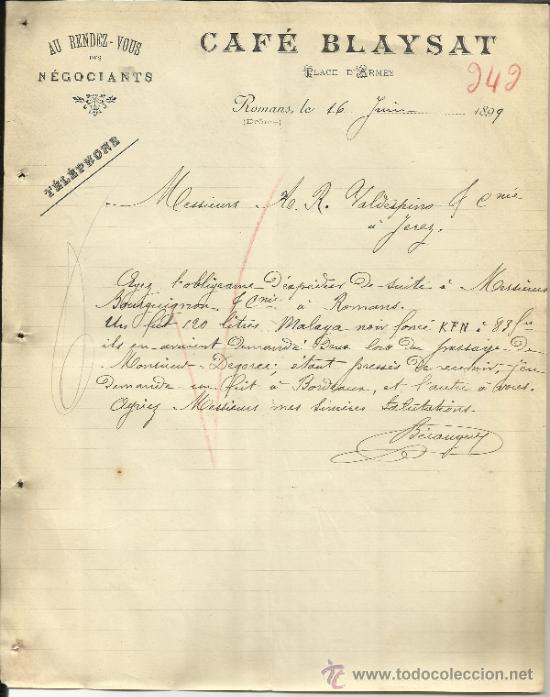 AU RENDEZ-VOUS
DES
NÉGOCIANTS
CAFÉ BLAYSAT
PLACE D'ARMES
242
Romans, le 16 Juin 1899
(Drôme)
TÉLÉPHONE
Messieurs A. R. Valdespino & Cnie
à Jerez.
Ayez l'obligeance d'expédier de suite à Messieurs
Bourguignon & Cnie à Romans.
Un fût 120 litres Malaga noir foncé KFN à 83 f
ils en avaient demandé deux lors du passage de
Monsieur Degorce; étant pressés de recevoir, j'en
demande un fût à Bordeaux, et l'autre à vous.
Agréez Messieurs mes sincères salutations.
Béranger
todocoleccion
www.todocoleccion.net